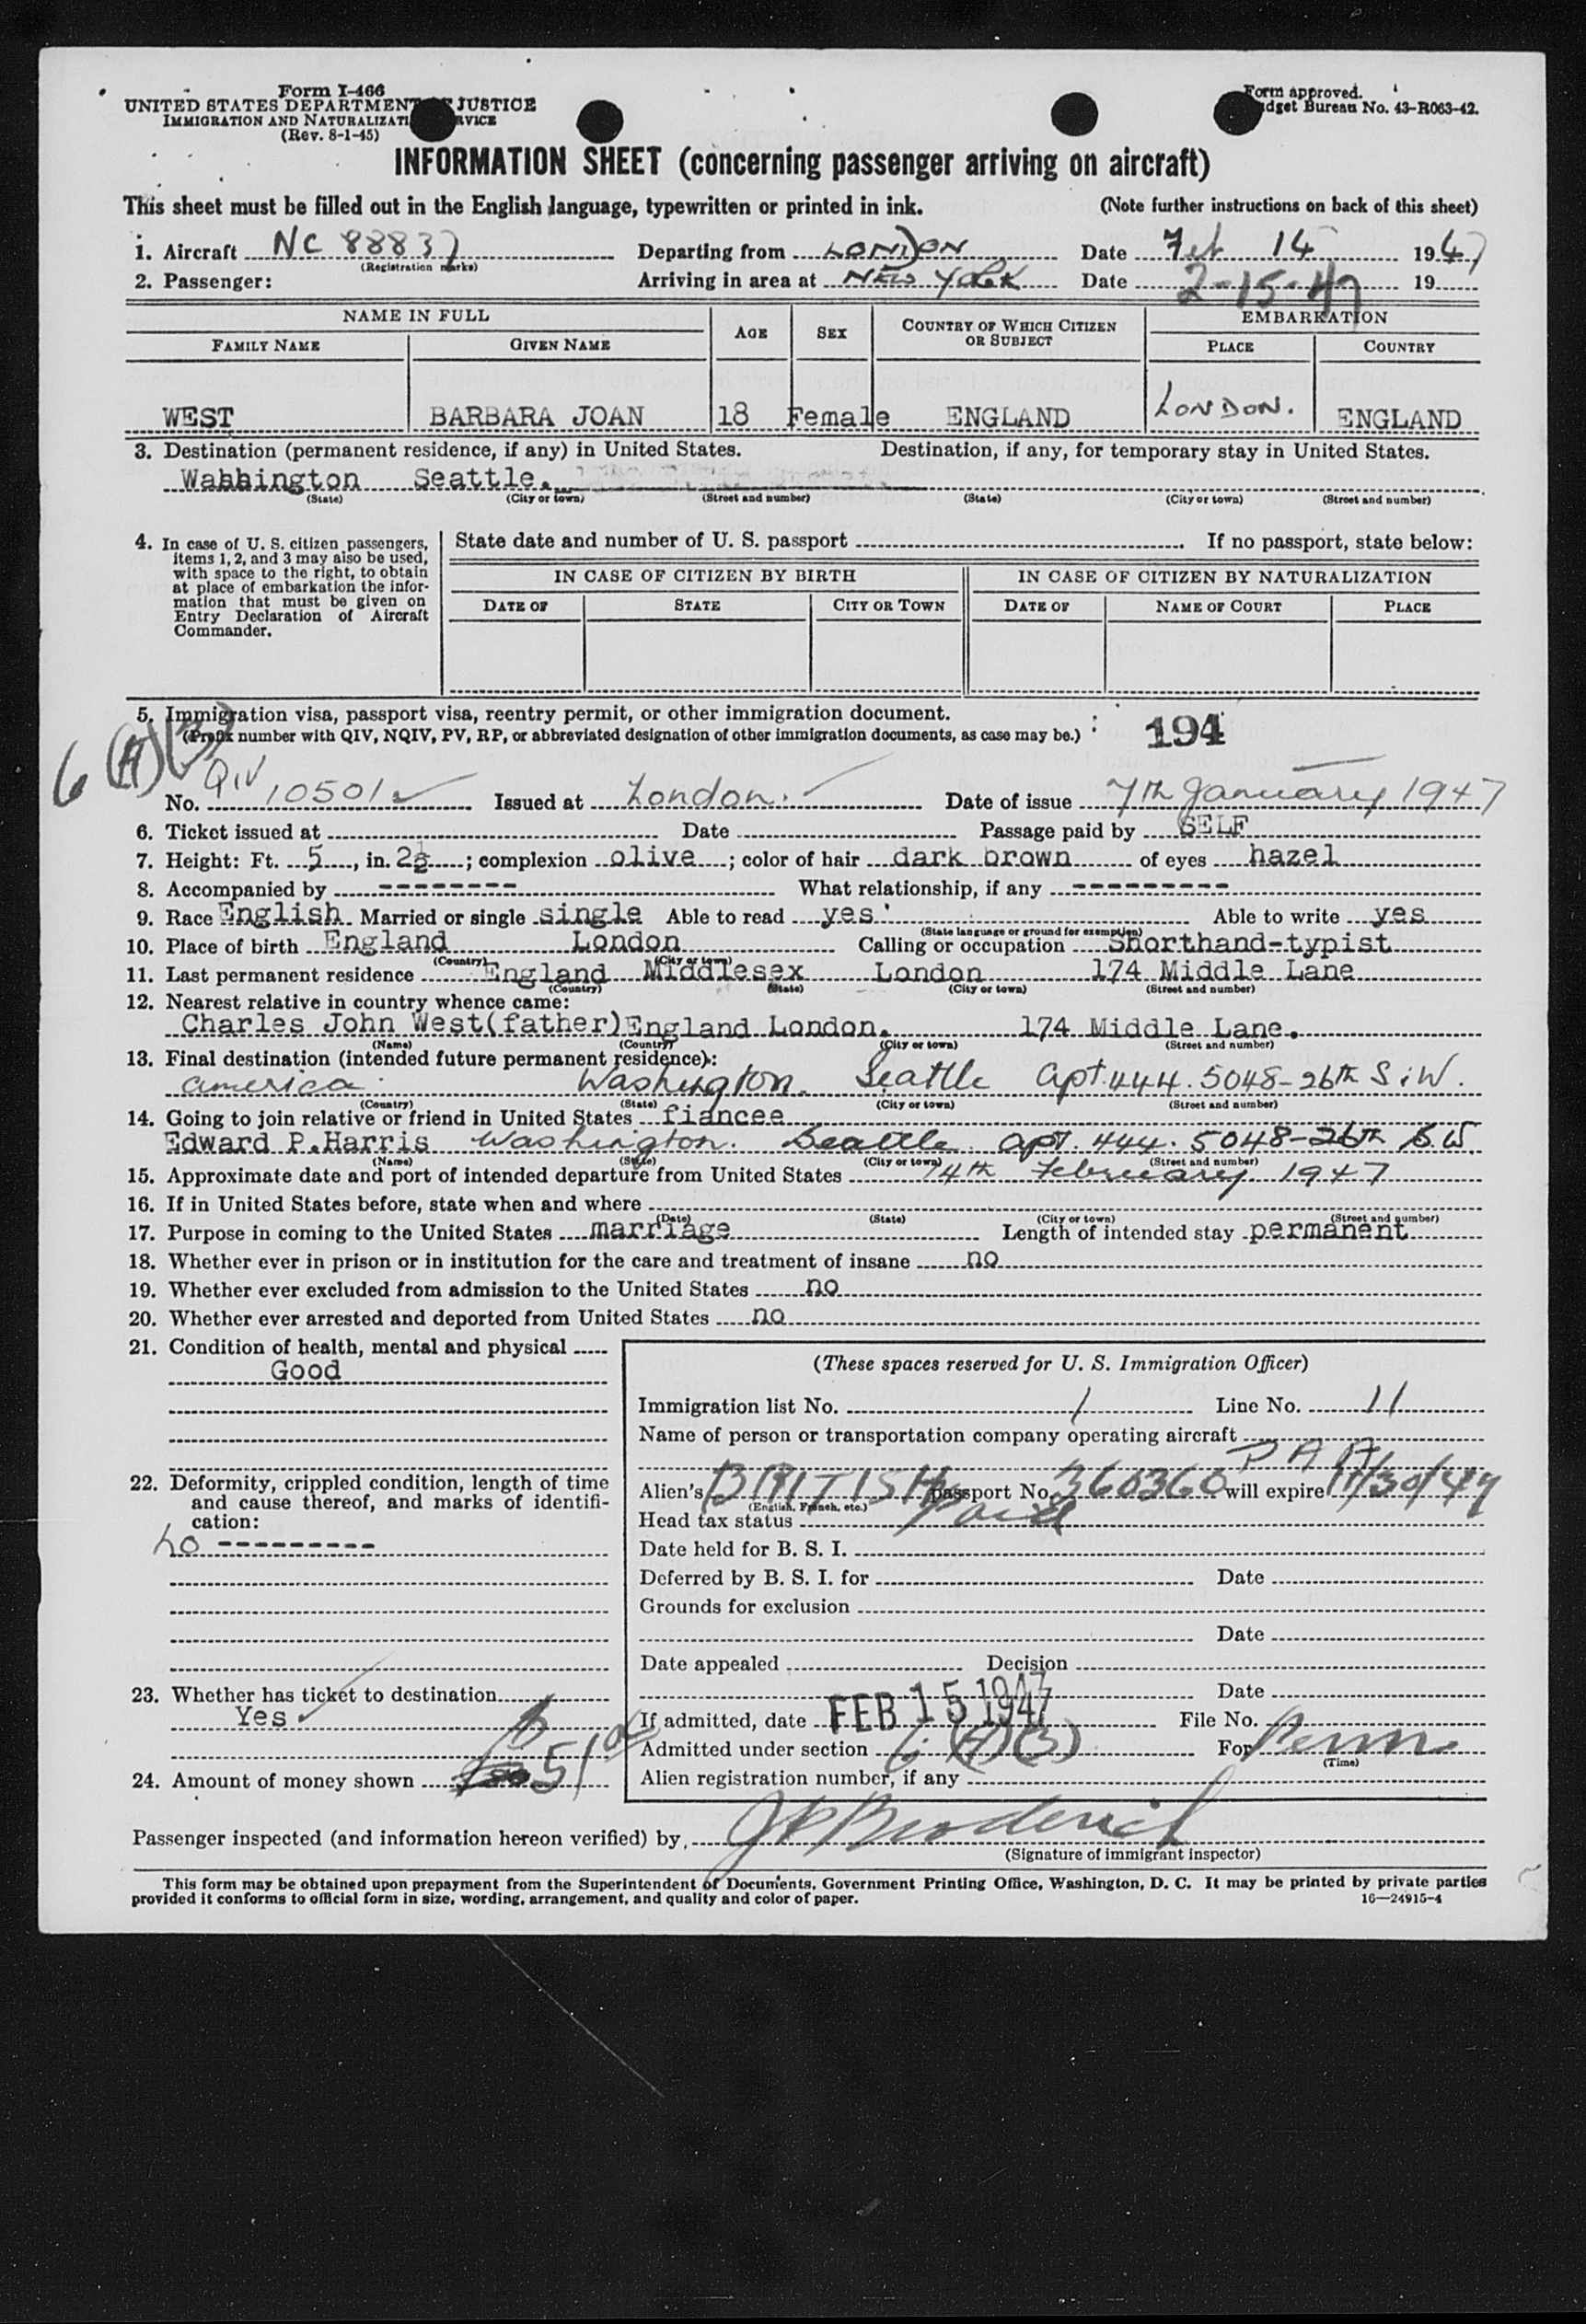 Form I-466
UNITED STATES DEPARTMENT JUSTICE
IMMIGRATION AND NATURALIZATI RVICE
(Rev. 8-1-45)
Form approved.
dget Bureau No. 43-R063-42.
INFORMATION SHEET (concerning passenger arriving on aircraft)
This sheet must be filled out in the English language, typewritten or printed in ink. (Note further instructions on back of this sheet)
1. Aircraft NC 88837 Departing from LONDON Date Feb 14 1947
(Registration marks)
2. Passenger: Arriving in area at NEW YORK Date 2-15-47 19
NAME IN FULL AGE SEX COUNTRY OF WHICH CITIZEN OR SUBJECT EMBARKATION
FAMILY NAME GIVEN NAME PLACE COUNTRY
WEST BARBARA JOAN 18 Female ENGLAND LONDON. ENGLAND
3. Destination (permanent residence, if any) in United States. Destination, if any, for temporary stay in United States.
Wahhington Seattle.
(State) (City or town) (Street and number) (State) (City or town) (Street and number)
4. In case of U. S. citizen passengers,
items 1, 2, and 3 may also be used,
with space to the right, to obtain
at place of embarkation the infor-
mation that must be given on
Entry Declaration of Aircraft
Commander.
State date and number of U. S. passport If no passport, state below:
IN CASE OF CITIZEN BY BIRTH IN CASE OF CITIZEN BY NATURALIZATION
DATE OF STATE CITY OR TOWN DATE OF NAME OF COURT PLACE
5. Immigration visa, passport visa, reentry permit, or other immigration document.
(Prefix number with QIV, NQIV, PV, RP, or abbreviated designation of other immigration documents, as case may be.) 194
6 (A)(3)
No. QIV 10501 Issued at London. Date of issue 7th January 1947
6. Ticket issued at Date Passage paid by SELF
7. Height: Ft. 5, in. 2½; complexion olive; color of hair dark brown of eyes hazel
8. Accompanied by --------- What relationship, if any ----------
9. Race English Married or single single Able to read yes Able to write yes
(State language or ground for exemption)
10. Place of birth England London Calling or occupation Shorthand-typist
(Country) (City or town)
11. Last permanent residence England Middlesex London 174 Middle Lane
(Country) (State) (City or town) (Street and number)
12. Nearest relative in country whence came:
Charles John West(father)England London. 174 Middle Lane.
(Name) (Country) (City or town) (Street and number)
13. Final destination (intended future permanent residence):
america Washington. Seattle apt.444. 5048-26th S.W.
(Country) (State) (City or town) (Street and number)
14. Going to join relative or friend in United States fiancee
Edward P.Harris Washington. Seattle apt. 444. 5048-26th S.W.
(Name) (State) (City or town) (Street and number)
15. Approximate date and port of intended departure from United States 14th February 1947
16. If in United States before, state when and where
(Date) (State) (City or town) (Street and number)
17. Purpose in coming to the United States marriage Length of intended stay permanent
18. Whether ever in prison or in institution for the care and treatment of insane no
19. Whether ever excluded from admission to the United States no
20. Whether ever arrested and deported from United States no
21. Condition of health, mental and physical
Good
22. Deformity, crippled condition, length of time
and cause thereof, and marks of identifi-
cation:
no ----------
23. Whether has ticket to destination
Yes
24. Amount of money shown 51
(These spaces reserved for U. S. Immigration Officer)
Immigration list No. 1 Line No. 11
Name of person or transportation company operating aircraft
P A A
Alien's BRITISH passport No. 360360 will expire 11/30/47
(English, French, etc.)
Head tax status Paid
Date held for B. S. I.
Deferred by B. S. I. for Date
Grounds for exclusion
Date
Date appealed Decision
Date
If admitted, date FEB 15 1947 File No.
Admitted under section 6 (A)(3) For Perm
(Time)
Alien registration number, if any
Passenger inspected (and information hereon verified) by, J P Broderick
(Signature of immigrant inspector)
This form may be obtained upon prepayment from the Superintendent of Documents, Government Printing Office, Washington, D. C. It may be printed by private parties
provided it conforms to official form in size, wording, arrangement, and quality and color of paper. 16—24915-4